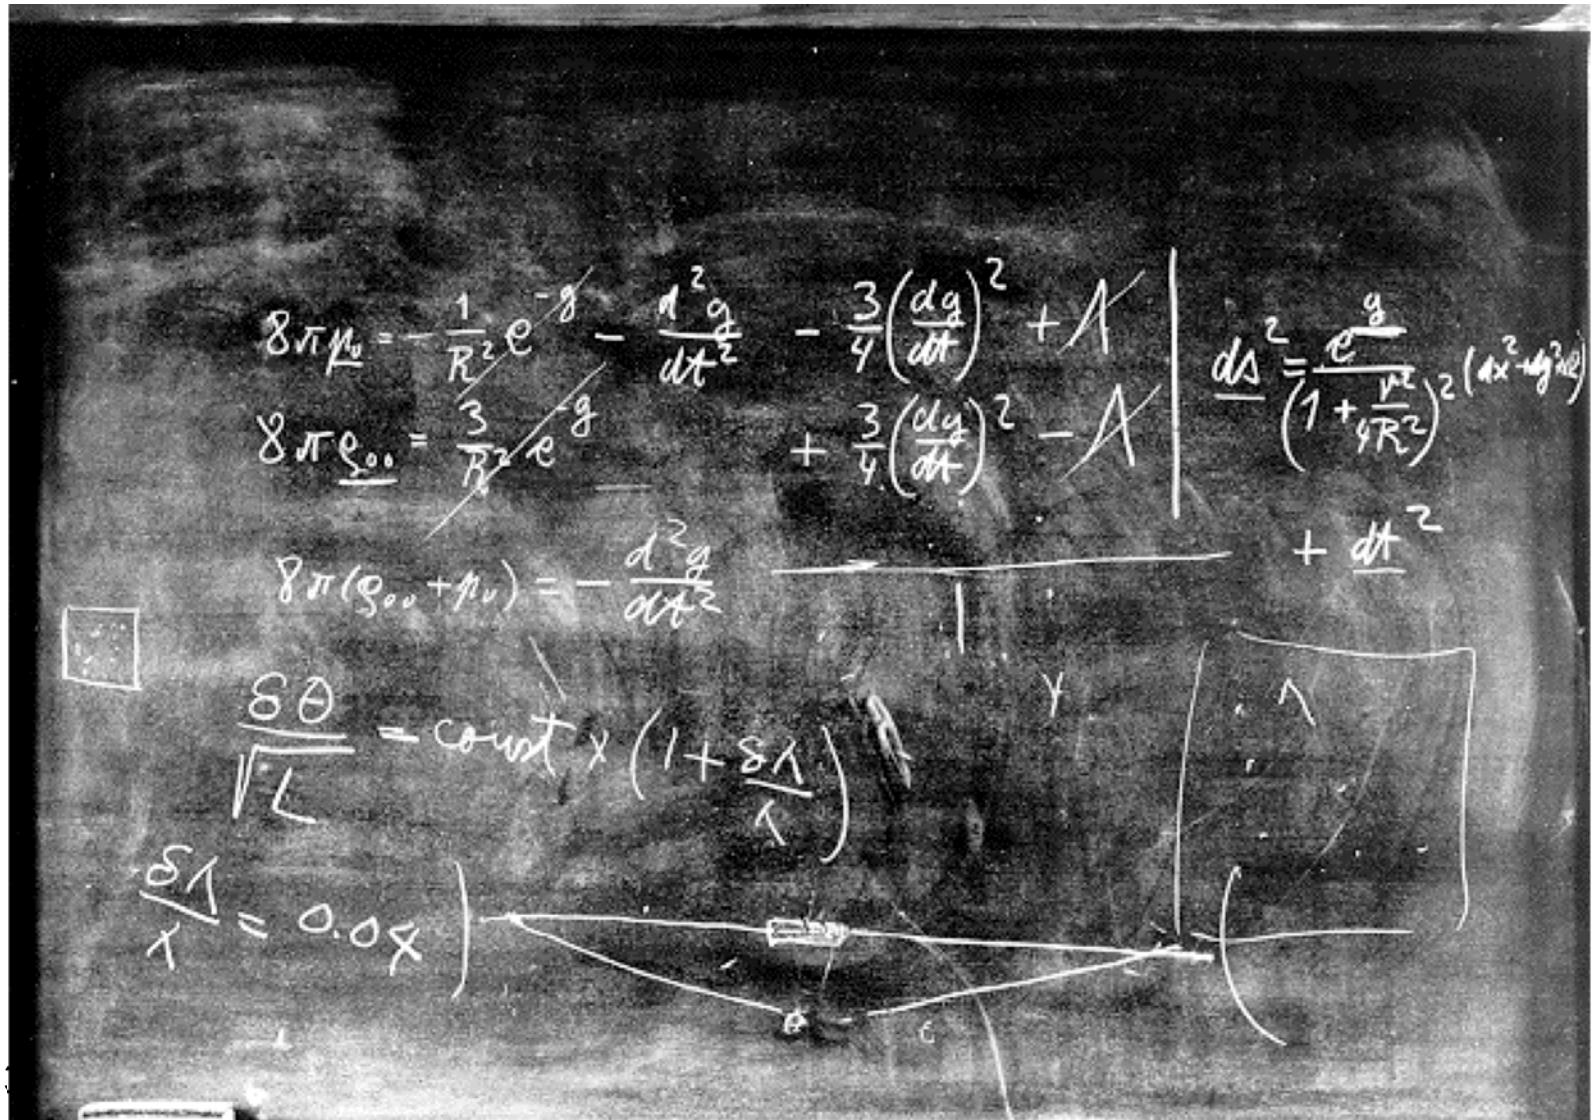 8πp₀ = - 1/R² e^-g - d²g/dt² - 3/4 (dg/dt)² + Λ
8πρ₀₀ = 3/R² e^-g + 3/4 (dg/dt)² - Λ
ds² = e^g/(1 + r²/4R²)² (dx² + dy² + dz²)
+ dt²
8π(ρ₀₀ + p₀) = - d²g/dt²
δθ/√L = const × (1 + δλ/λ)
δλ/λ = 0.04